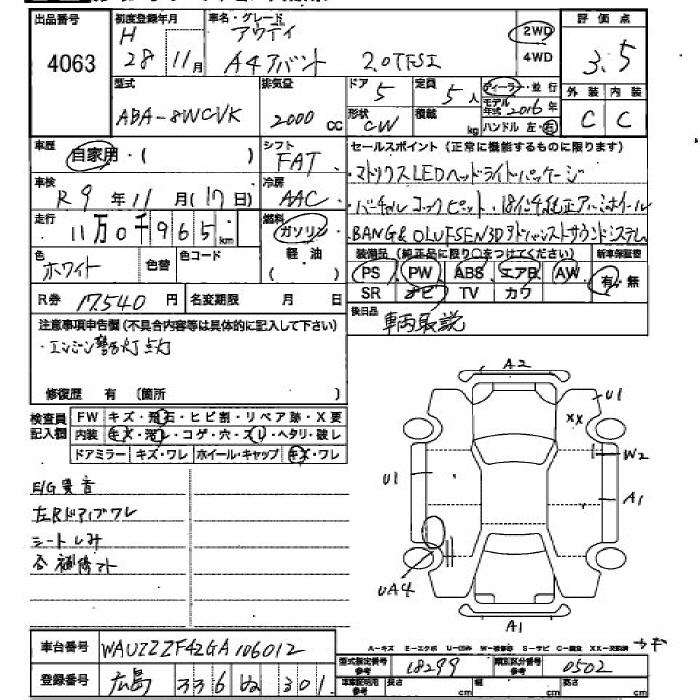 出品番号 初度登録年月 車名・グレード 評価点
4063 H 28年11月 アウディ A4アバント 2.0TFSI 2WD 4WD 3.5
型式 排気量 ドア 定員 ディーラー・並行 外装 内装
ABA-8WCVK 2000cc 5 5人 モデル年式 2016年 C C
形状 CW 積載 kg ハンドル 左・右
車歴 自家用・( ) シフト FAT セールスポイント(正常に機能するものに限ります)
車検 R9年11月(17日) 冷房 AAC ・マトリクスLEDヘッドライトパッケージ
走行 11万0千965km 燃料 ガソリン ・バーチャルコックピット・18インチ純正アルミホイール
軽油 ・BANG&OLUFSEN3Dアドバンストサウンドシステム
色 ホワイト 色替 色コード ( ) 装備品(純正品に限り○をつけてください) 新車保証書
PS PW ABS エアB AW 有・無
R券 17,540円 名変期限 月 日 SR ナビ TV カワ
注意事項申告欄(不具合内容等は具体的に記入して下さい) 後日品 車両取説
・エンジン警告灯点灯
修復歴 有 〔箇所 〕
検査員記入欄 FW キズ・飛石・ヒビ割・リペア跡・X要
内装 キズ・汚レ・コゲ・穴・スレ・ヘタリ・破レ
ドアミラー キズ・ワレ ホイール・キャップ キズ・ワレ
E/G異音
左Rドアイブワレ
シートしみ
合 補修アト
A2
U1
XX
W2
U1
A1
UA4
A1
A-キズ E-エクボ U-凹み W-補修跡 S-サビ C-腐食 XX-交換済
車台番号 WAUZZZF42GA106012
型式指定番号 参考 18299 類別区分番号 参考 0502
登録番号 広島 336 ぬ 301
車庫証明用 参考 長さ cm 幅 cm 高さ cm